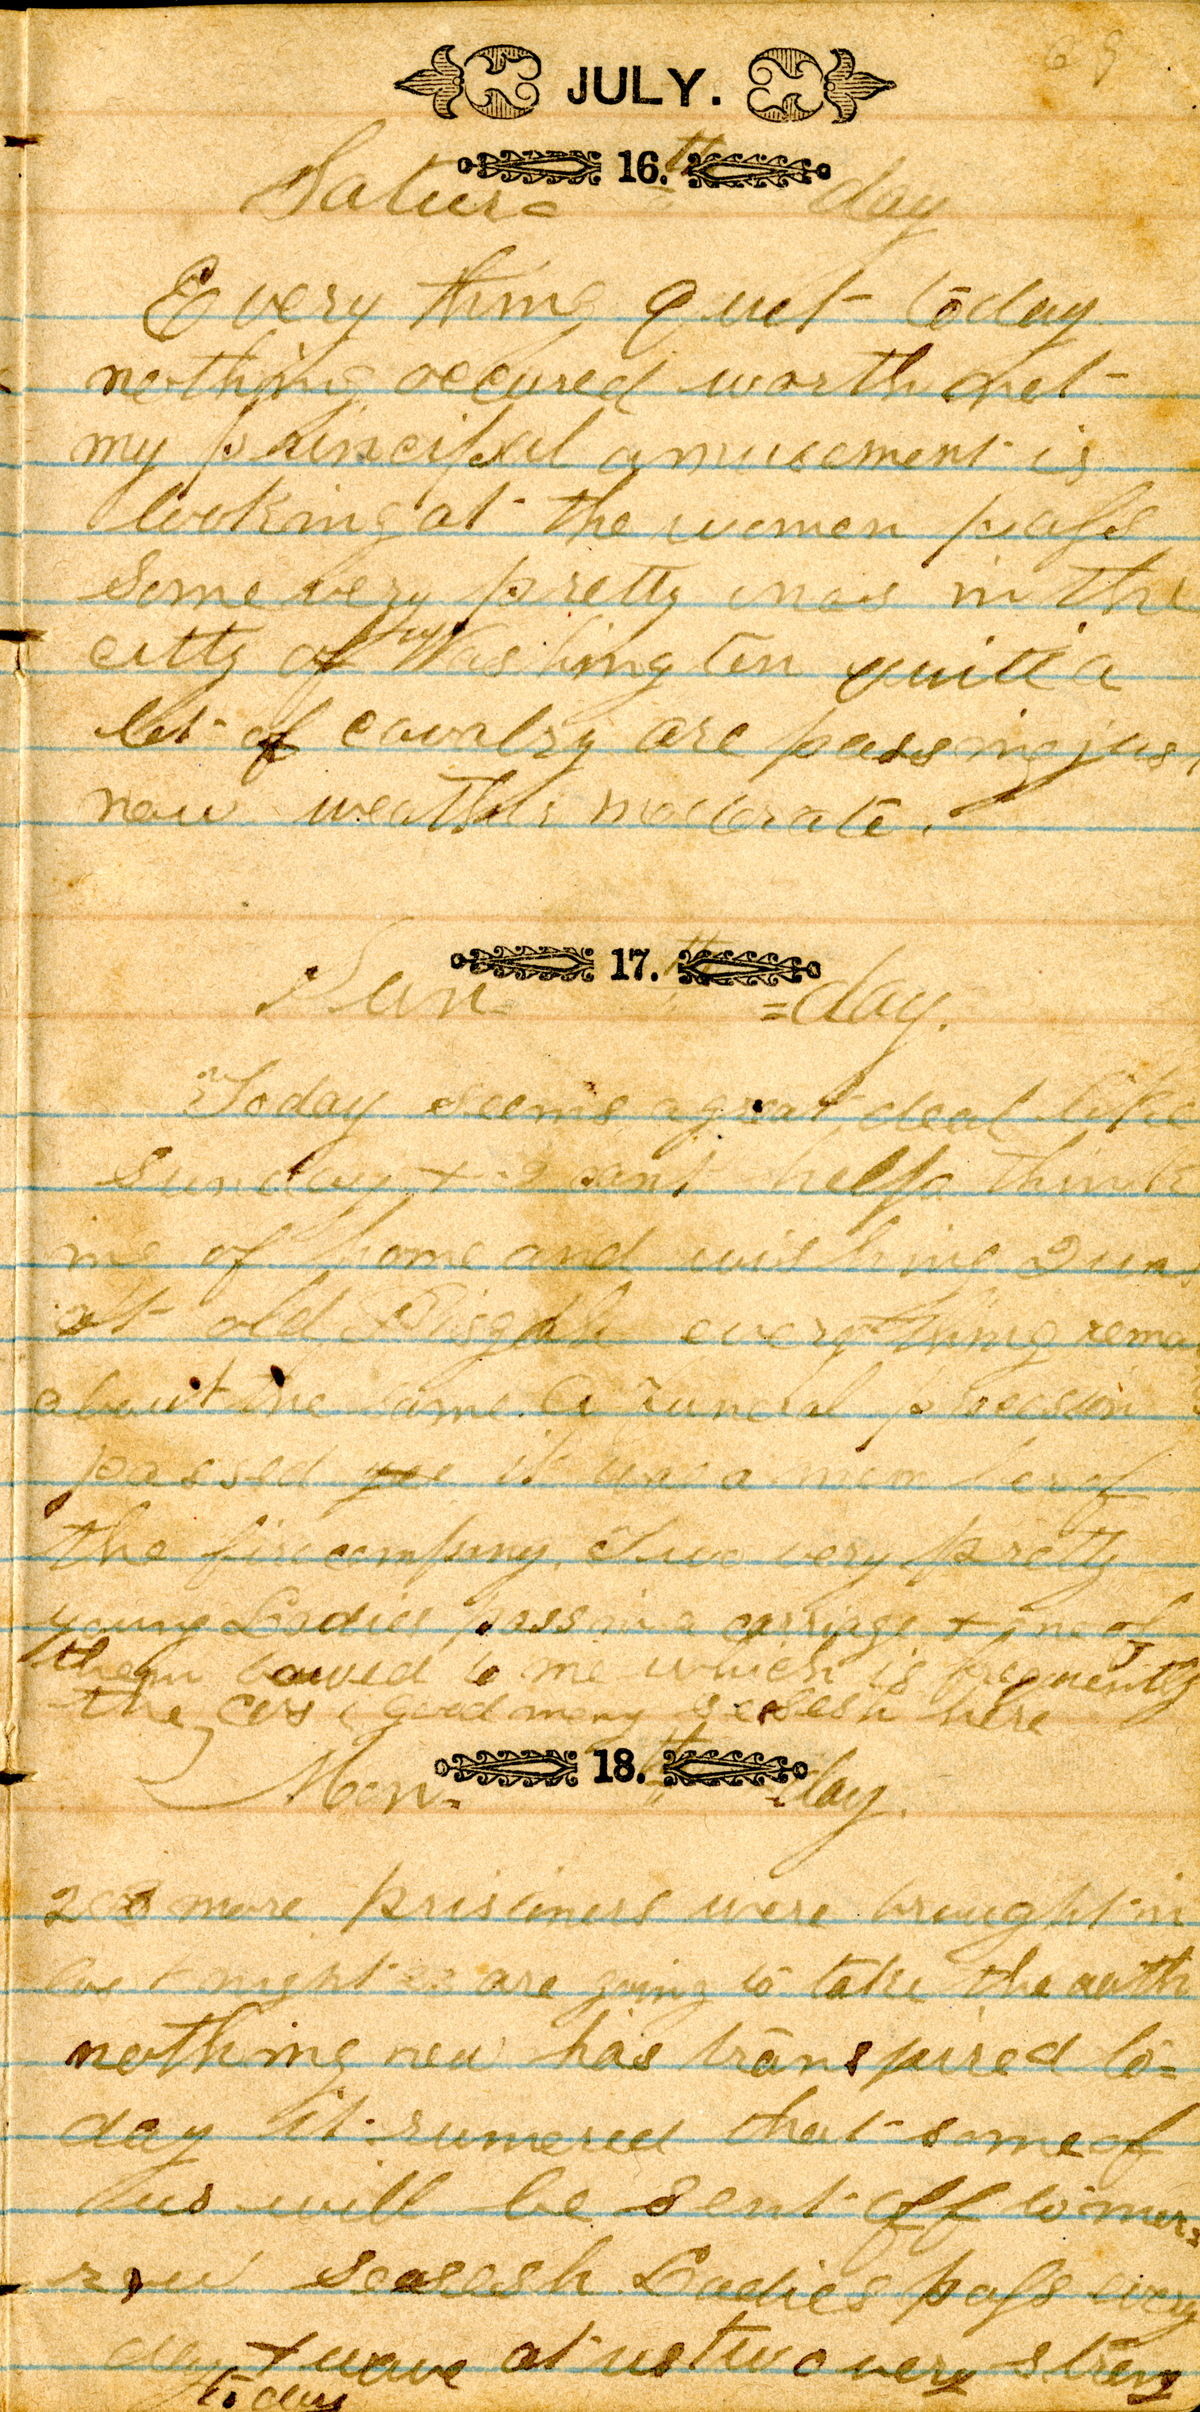 69
JULY.
Satur= 16.th day
Every thing Quet today
nothing occured worth
my principal amusement is
looking at the women pass
some very pretty ones in the
citty of Washington quite a
lot of cavalry are passing jus
now weather moderate.
Sun- 17.th =day.
Today seems a great deal like
Sunday + I cant help think
ing of home and wishing I was
at old Pisgah every thing remai
about the same. A funeral procesion
passed it was a member of
the fire compny. Two very pretty
young Ladies pass in a carriage + one of
them bowed to me which is frequently
the case good many secesh here
Mon- 18.th -day.
208 more prisiners were brought in
last night are going to take the oath
nothing new has transpired to=
day it rumered that some of
us will be sent off to mor=
row secesh Ladies pass every
day + wave at us two very
today